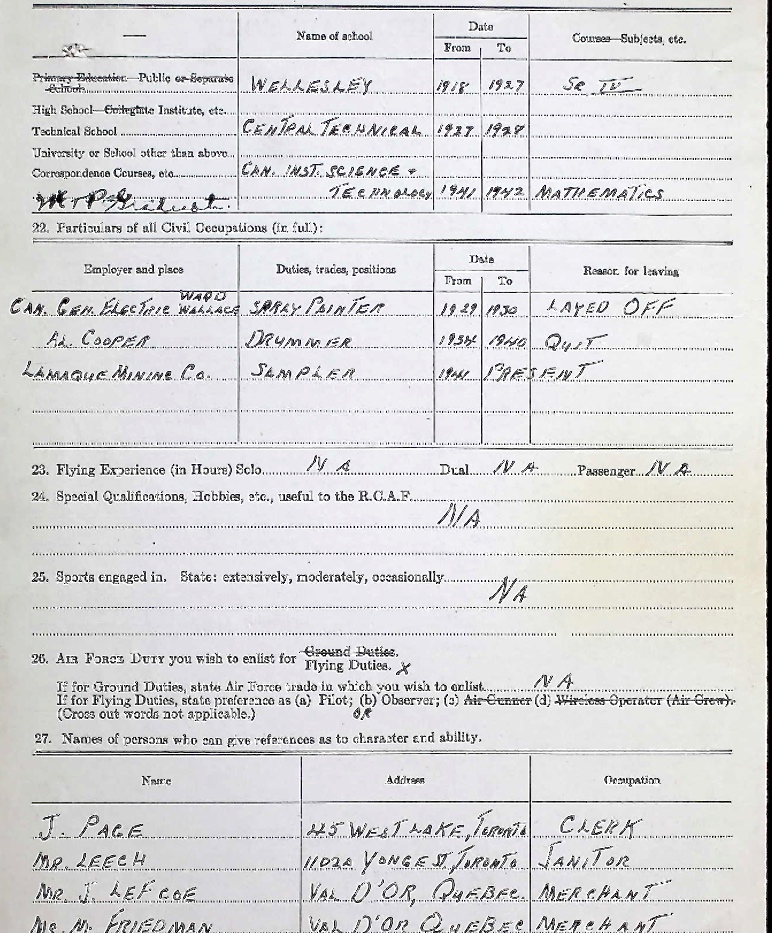 Name of school Date Courses—Subjects, etc.
From To
Primary Education Public or Separate School WELLESLEY 1918 1927 Sr IV
High School—Collegiate Institute, etc.
Technical School CENTRAL TECHNICAL 1927 1928
University or School other than above
Correspondence Courses, etc. CAN. INST. SCIENCE +
TECHNOLOGY 1941 1942 MATHEMATICS
22. Particulars of all Civil Occupations (in full):
Employer and place Duties, trades, positions Date Reason for leaving
From To
CAN. GEN. ELECTRIC WARD WALLACE SPRAY PAINTER 1929 1930 LAYED OFF
AL COOPER DRUMMER 1934 1940 QUIT
LAMAQUE MINING CO. SAMPLER 1941 PRESENT
23. Flying Experience (in Hours) Solo NA Dual NA Passenger NA
24. Special Qualifications, Hobbies, etc., useful to the R.C.A.F.
NA
25. Sports engaged in. State: extensively, moderately, occasionally
NA
26. AIR FORCE DUTY you wish to enlist for Ground Duties.
Flying Duties. X
If for Ground Duties, state Air Force trade in which you wish to enlist NA
If for Flying Duties, state preference as (a) Pilot; (b) Observer; (c) Air Gunner (d) Wireless Operator (Air Crew).
(Cross out words not applicable.) OR
27. Names of persons who can give references as to character and ability.
Name Address Occupation
J. PAGE 45 WESTLAKE, TORONTO CLERK
MR. LEECH YONGE ST, TORONTO JANITOR
MR J. LEFCOE VAL D'OR, QUEBEC. MERCHANT
MR M. FRIEDMAN VAL D'OR QUEBEC MERCHANT